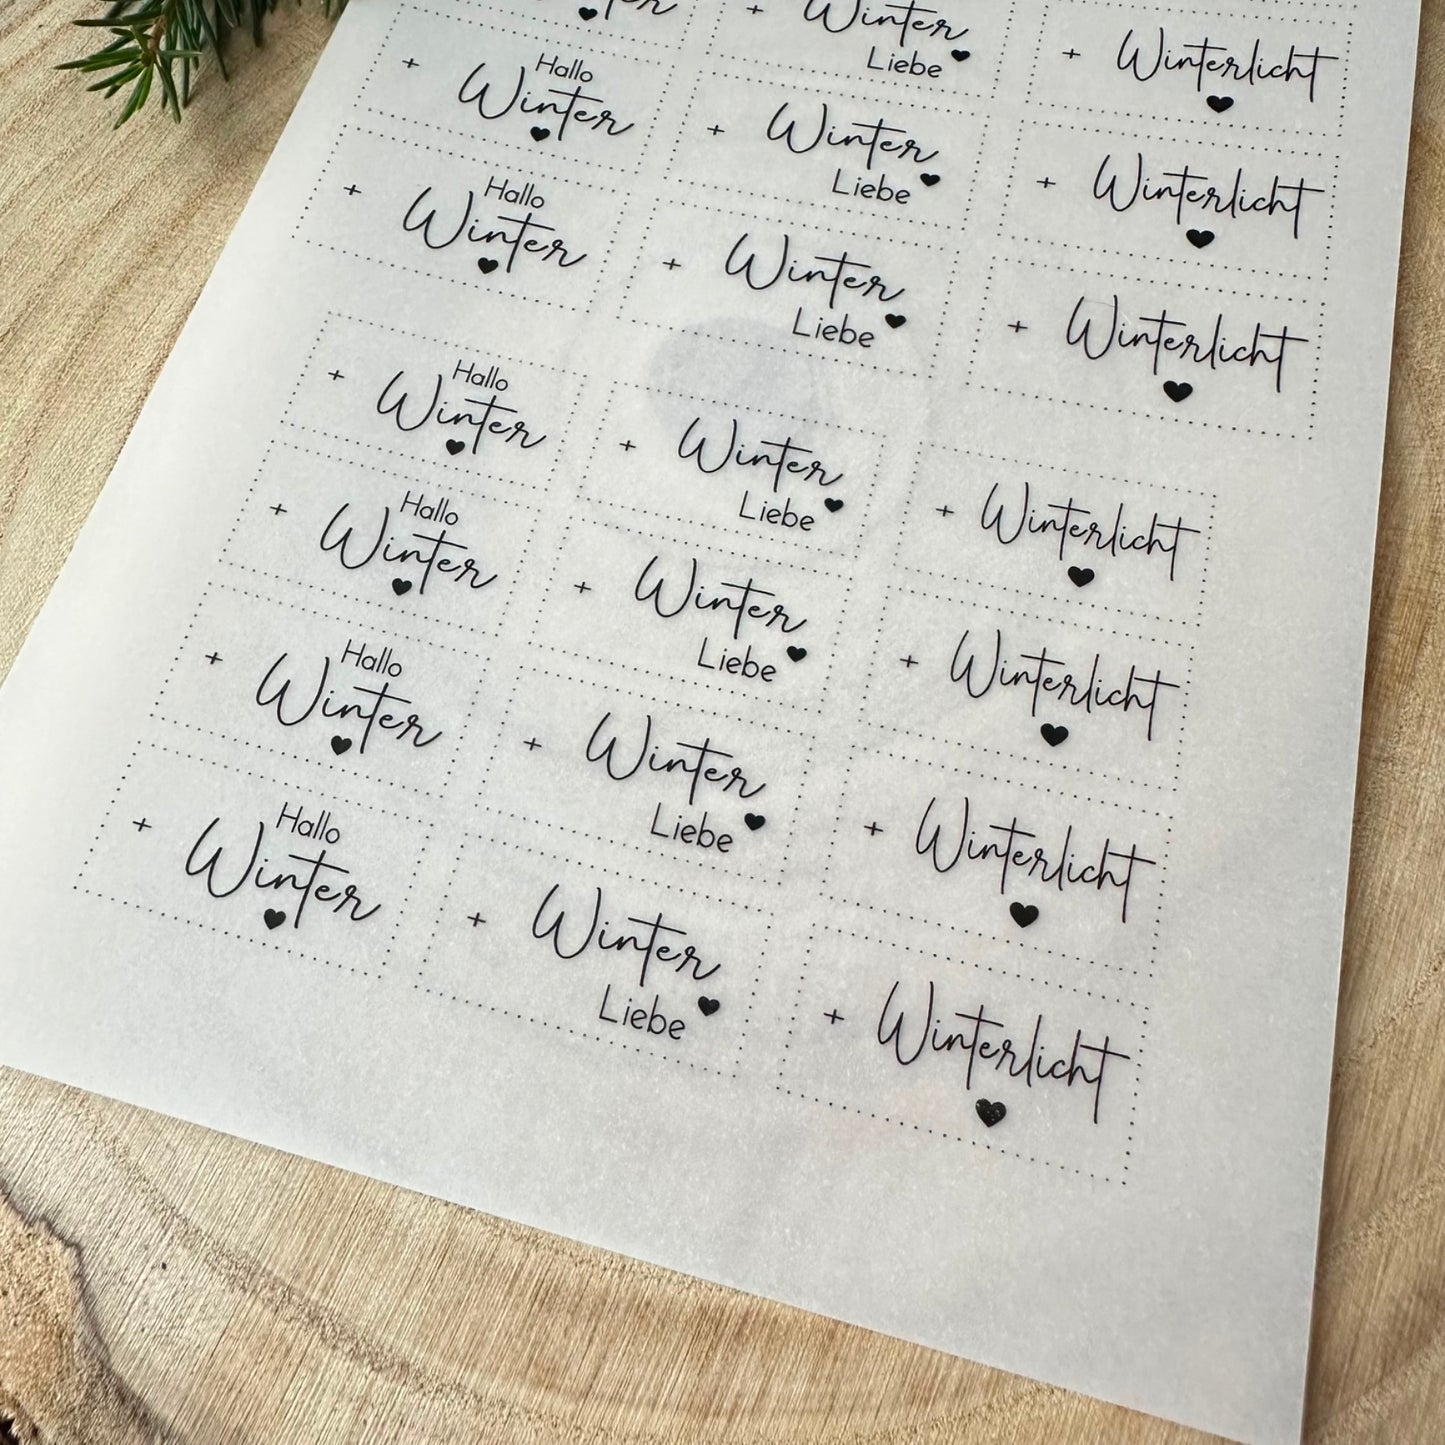 Winter
+ Winter
Liebe
+ Winterlicht
Hallo
+ Winter
+ Winter
Liebe
+ Winterlicht
Hallo
+ Winter
+ Winter
Liebe
+ Winterlicht
Hallo
+ Winter
+ Winter
Liebe
+ Winterlicht
Hallo
+ Winter
+ Winter
Liebe
+ Winterlicht
Hallo
+ Winter
+ Winter
Liebe
+ Winterlicht
Hallo
+ Winter
+ Winter
Liebe
+ Winterlicht